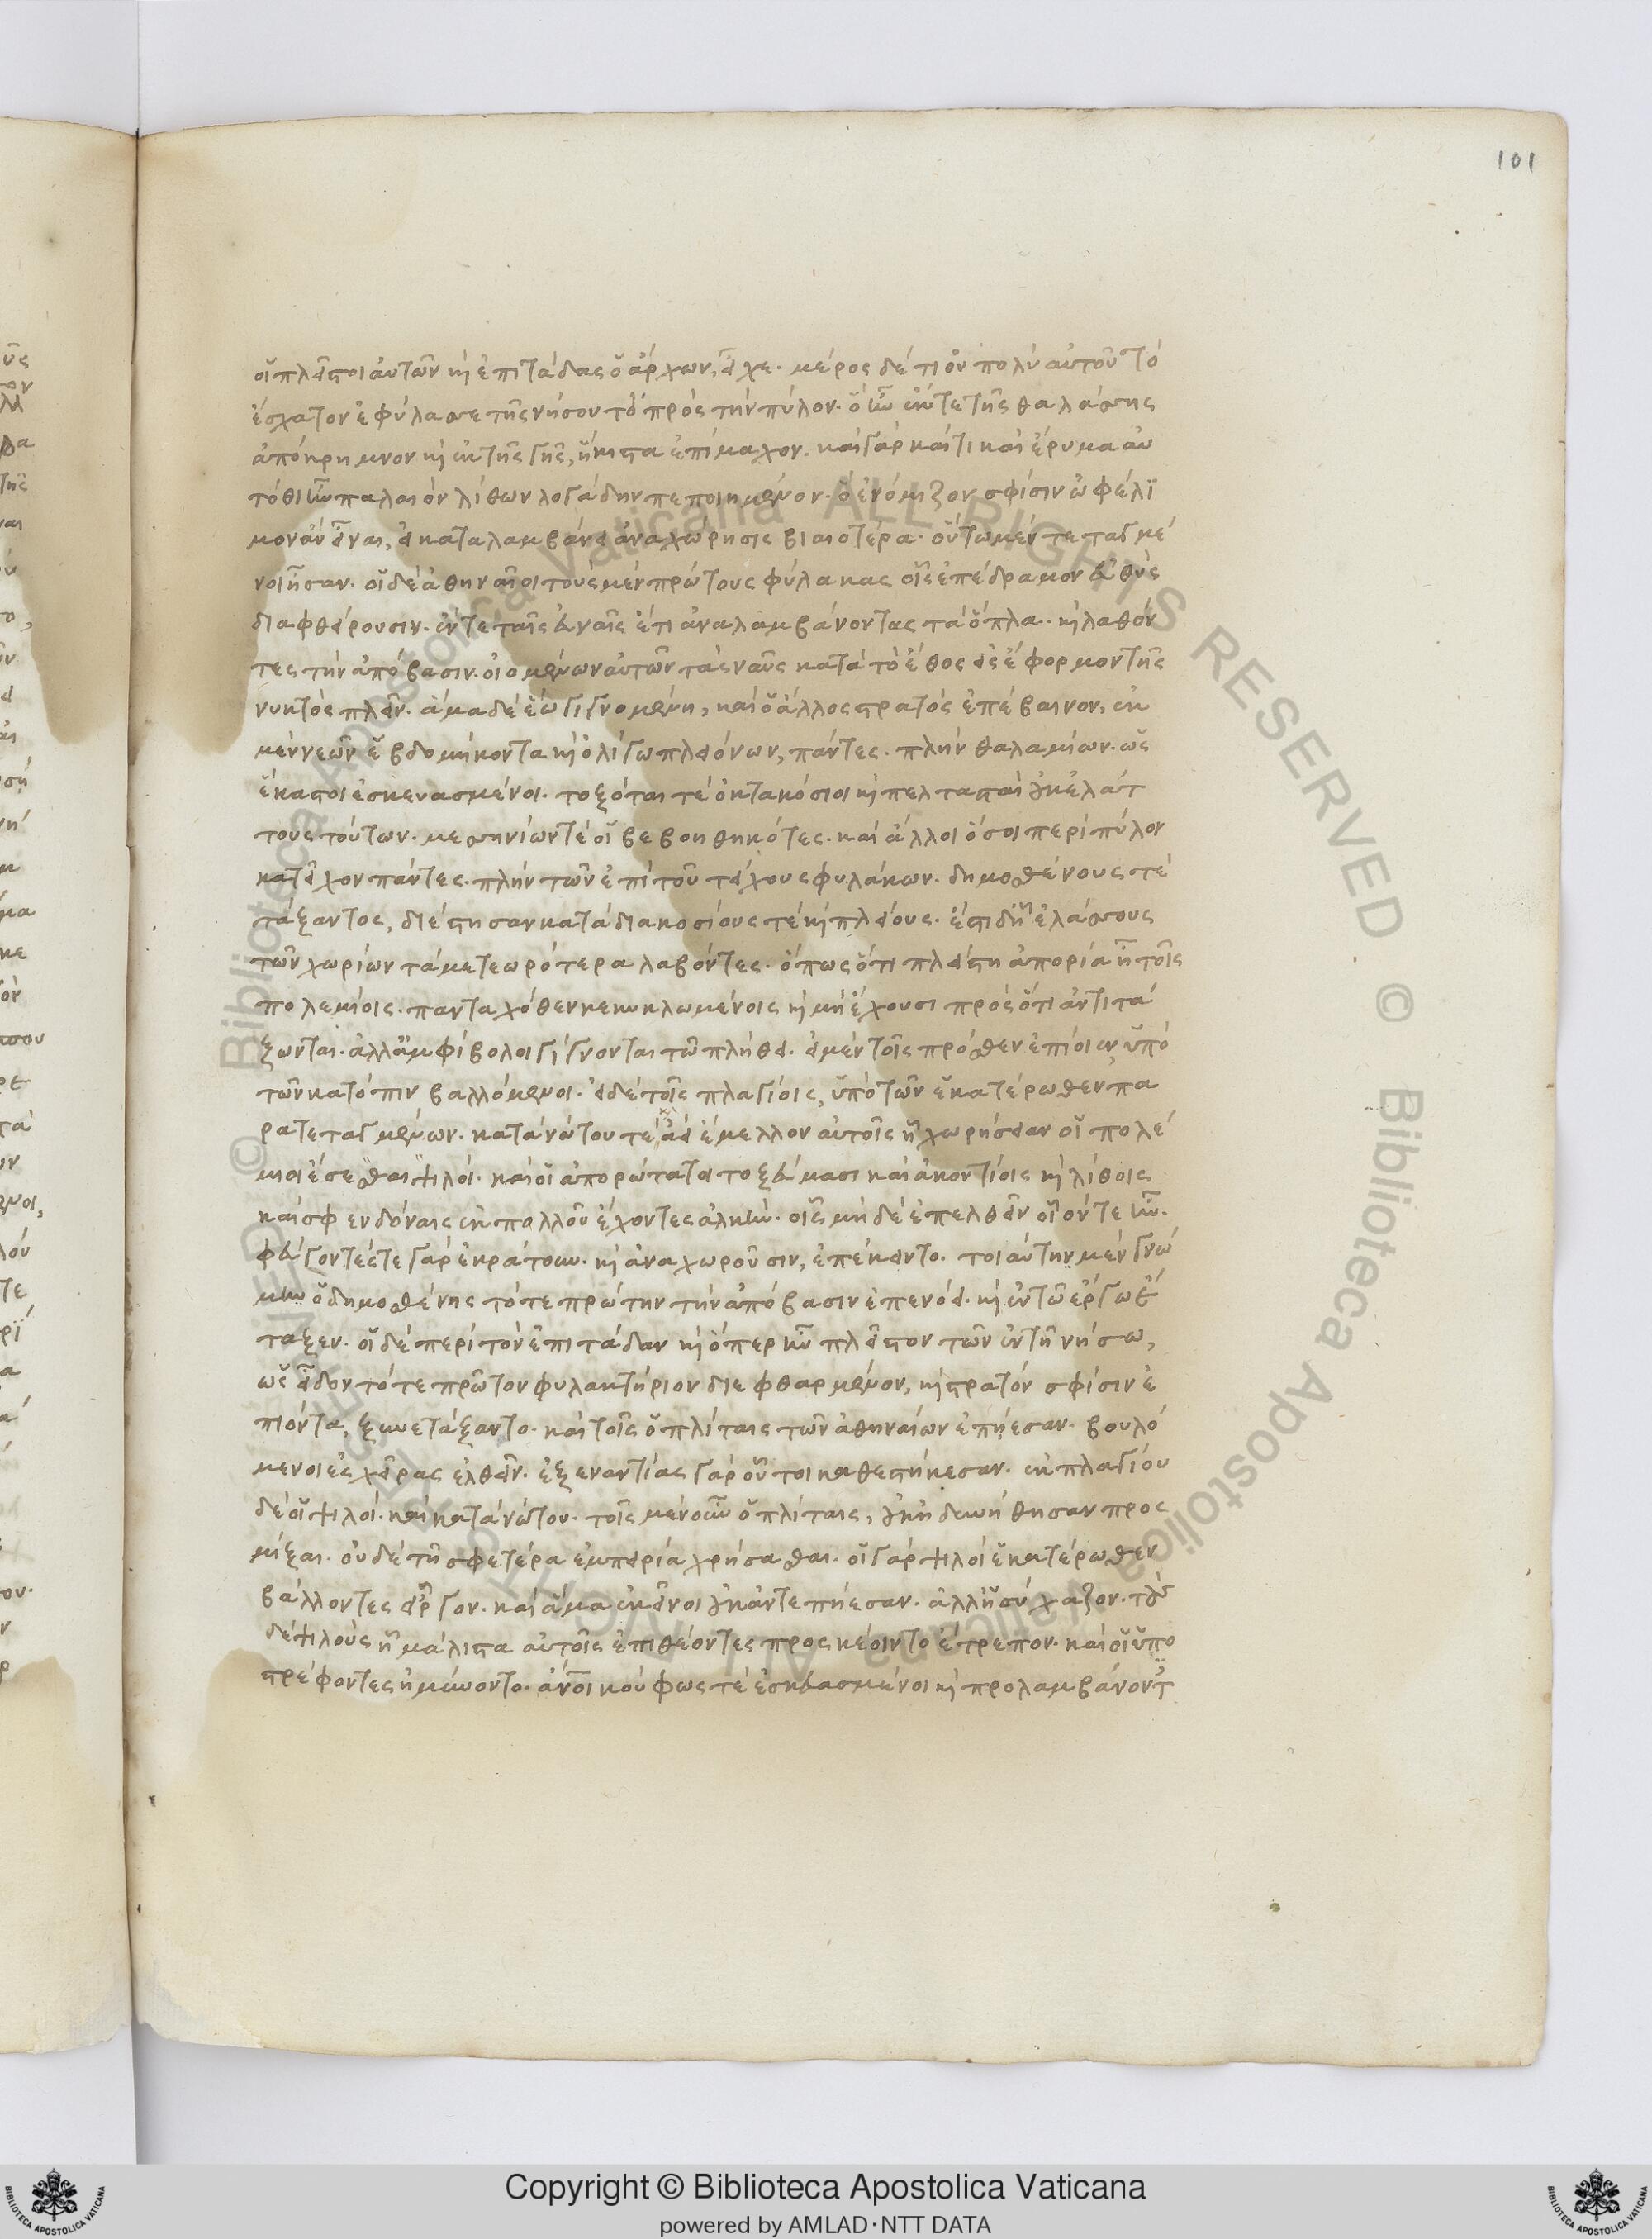 101
οἱ πλεῖστοι αὐτῶν καὶ ἐπιτάδας ὁ ἄρχων, εἶχε. μέρος δέ τι οὐ πολὺ αὐτοῦ τὸ
ἔσχατον ἐφύλασσε τῆς νήσου τὸ πρὸς τὴν πύλον. ὃ ἦν ἐκ τε τῆς θαλάσσης
ἀπόκρημνον καὶ ἐκ τῆς γῆς, ἥκιστα ἐπίμαχον. καὶ γάρ καί τι καὶ ἔρυμα αὐ
τόθι ἦν παλαιὸν λίθων λογάδην πεποιημένον. ὃ ἐνόμιζον σφίσιν ὠφέλι
μον ἂν εἶναι, εἰ καταλαμβάνει ἀναχώρησις βιαιοτέρα. οὕτω μὲν τεταγμέ
νοι ἦσαν. οἱ δὲ ἀθηναῖοι τοὺς μὲν πρώτους φύλακας οἷς ἐπέδραμον εὐθὺς
διαφθείρουσιν. ἔν τε ταῖς εὐναῖς ἔτι ἀναλαμβάνοντας τὰ ὅπλα. καὶ λαθόν
τες τὴν ἀπόβασιν. οἰομένων αὐτῶν τὰς ναῦς κατὰ τὸ ἔθος ἐς ἔφορμον τῆς
νυκτὸς πλεῖν. ἅμα δὲ ἕῳ γιγνομένῃ, καὶ ὁ ἄλλος στρατὸς ἐπέβαινον, ἐκ
μὲν νεῶν ἑβδομήκοντα καὶ ὀλίγω πλειόνων, πάντες. πλὴν θαλαμίων. ὡς
ἕκαστοι ἐσκευασμένοι. τοξόται τὲ ὀκτακόσιοι καὶ πελτασταὶ οὐκ ἐλάτ
τους τούτων. μεσσηνίων τὲ οἱ βεβοηθηκότες. καὶ ἄλλοι ὅσοι περὶ πύλον
κατεῖχον πάντες. πλὴν τῶν ἐπὶ τοῦ τείχους φυλάκων. δημοσθένους τὲ
τάξαντος, διέστησαν κατὰ διακοσίους τὲ καὶ πλείους. ἔστι δ' ᾗ ἐλάσσους
τῶν χωρίων τὰ μετεωρότερα λαβόντες. ὅπως ὅτι πλείστη ἀπορία ᾖ τοῖς
πολεμίοις. πανταχόθεν κεκυκλωμένοις καὶ μὴ ἔχουσι πρὸς ὅτι ἀντιτά
ξωνται. ἀλλ' ἀμφίβολοι γίγνονται τῶ πλήθει. εἰ μὲν τοῖς πρόσθεν ἐπίοιεν, ὑπὸ
τῶν κατόπιν βαλλόμενοι. εἰ δὲ τοῖς πλαγίοις, ὑπὸ τῶν ἑκατέρωθεν πα
ρατεταγμένων. κατὰ νώτου τὲ ἀεὶ ἔμελλον αὐτοῖς ᾗ χωρήσειαν οἱ πολέ
μιοι ἔσεσθαι ψιλοί. καὶ οἱ ἀπορώτατοι τοξεύμασι καὶ ἀκοντίοις καὶ λίθοις
καὶ σφενδόναις ἐκ πολλοῦ ἔχοντες ἀλκήν. οἷς μηδὲ ἐπελθεῖν οἷόν τε ἦν.
φεύγοντές τε γὰρ ἐκράτουν. καὶ ἀναχωροῦσιν, ἐπέκειντο. τοιαύτῃ μὲν γνώ
μῃ ὁ δημοσθένης τότε πρώτην τὴν ἀπόβασιν ἐπενόει. καὶ ἐν τῶ ἔργω ἔ
ταξεν. οἱ δὲ περὶ τὸν ἐπιτάδαν καὶ ὅπερ ἦν πλεῖστον τῶν ἐν τῇ νήσω,
ὡς εἶδον τό τε πρῶτον φυλακτήριον διεφθαρμένον, καὶ στρατόν σφίσιν ἐ
πιόντα, ξυνετάξαντο. καὶ τοῖς ὁπλίταις τῶν ἀθηναίων ἐπῄεσαν. βουλό
μενοι ἐς χεῖρας ἐλθεῖν. ἐξεναντίας γὰρ οὗτοι καθεστήκεσαν. ἐκ πλαγίου
δὲ οἱ ψιλοί. καὶ κατὰ νώτου. τοῖς μὲν οὖν ὁπλίταις, οὐκ ἠδυνήθησαν προς
μίξαι. οὐδὲ τῇ σφετέρα ἐμπειρία χρήσασθαι. οἱ γὰρ ψιλοὶ ἑκατέρωθεν
βάλλοντες εἶργον. καὶ ἅμα ἐκεῖνοι οὐκ ἀντεπῄεσαν. ἀλλ' ἡσύχαζον. τοὺς
δὲ ψιλοὺς ᾗ μάλιστα αὐτοῖς ἐπιθέοντες προσκέοιντο ἔτρεπον. καὶ οἱ ὑπο
στρέφοντες ἠμύνοντο. ἄνοι κούφως τὲ ἐσκευασμένοι καὶ προλαμβάνοντες
Copyright © Biblioteca Apostolica Vaticana
powered by AMLAD·NTT DATA